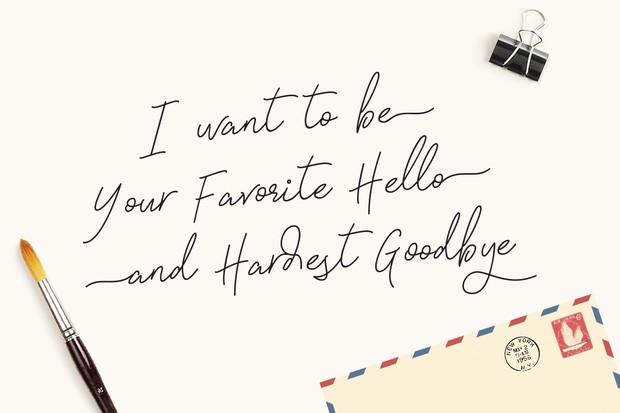 I want to be
Your Favorite Hello
and Hardest Goodbye
NEW YORK
1956
N.Y.
6